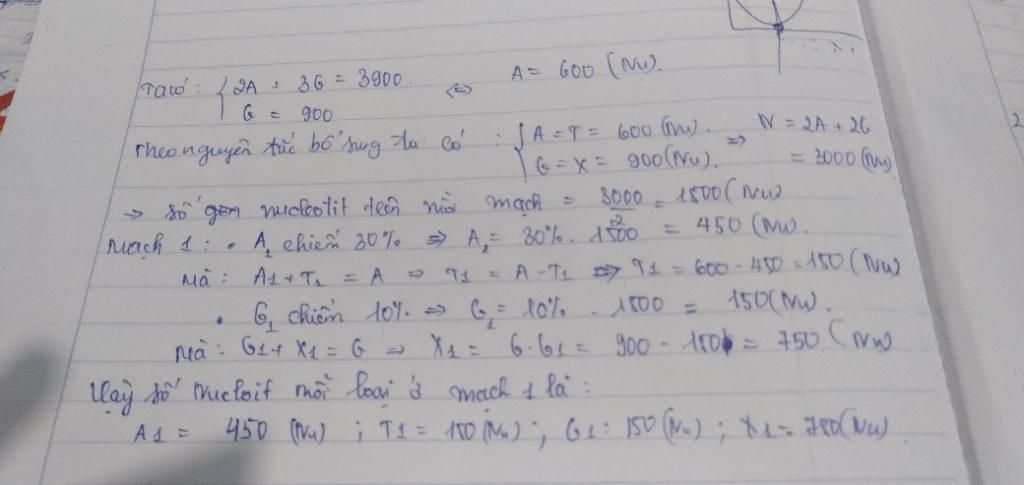 Ta có: { 2A + 3G = 3900. <=> A = 600 (Nu).
G = 900
Theo nguyên tắc bổ sung ta có : { A = T = 600 (Nu). => N = 2A + 2G
G = X = 900 (Nu). = 3000 (Nu)
→ Số nucleotit trên mỗi mạch = 3000/2 = 1500 (Nu)
Mạch 1 : • A1 chiếm 30% => A1 = 30% . 1500 = 450 (Nu).
Mà : A1 + T1 = A => T1 = A - T1 => T1 = 600 - 450 = 150 (Nu)
• G1 chiếm 10% => G1 = 10% . 1500 = 150 (Nu).
Mà : G1 + X1 = G => X1 = G - G1 = 900 - 150 = 750 (Nu)
Vậy số Nucloit mỗi loại ở mạch 1 là :
A1 = 450 (Nu) ; T1 = 150 (Nu) ; G1 : 150 (Nu) ; X1 = 750 (Nu)